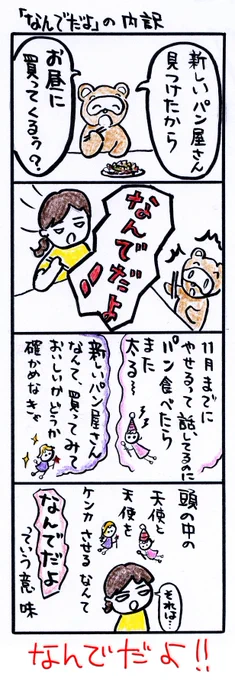 「なんでだよ」の内訳
新しいパン屋さん
見つけたから
お昼に
買ってくるぅ?
なんでだよ
!!
11月までに
やせるって話してるのに
パン食べたら
また
太る〜
新しいパン屋さん
なんて、買ってみて
おいしいかどうか
確かめなきゃ
頭の中の
天使と
天使を
ケンカさせるなんて
なんでだよ
っていう意味
それは…
なんでだよ!!